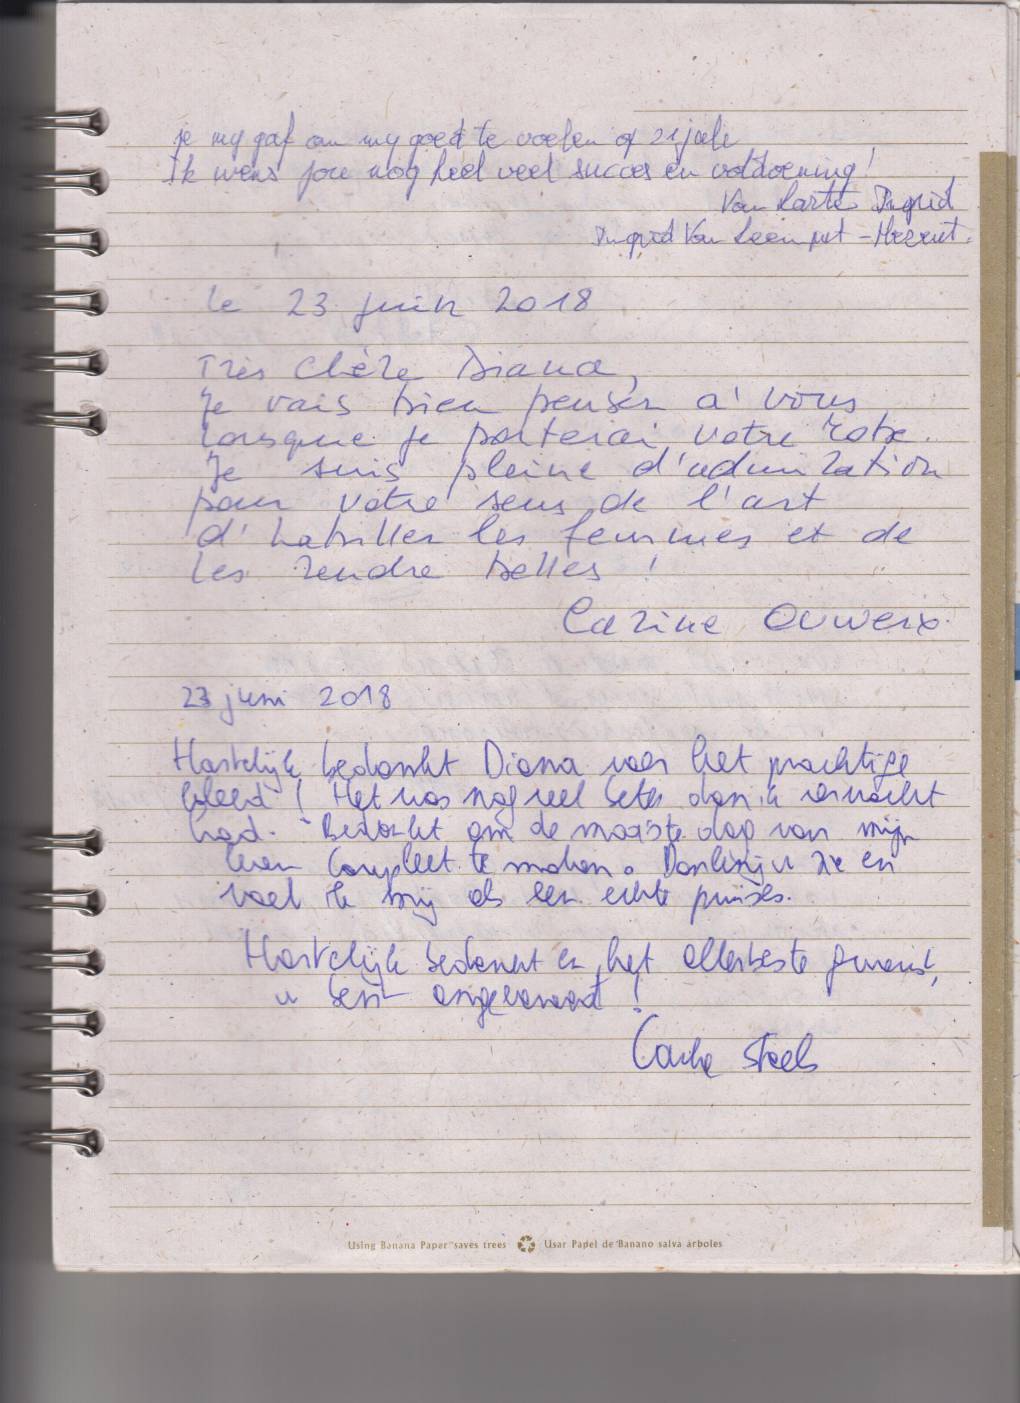 je mij gaf om mij goed te voelen op 21 juli
Ik wens jou nog heel veel succes en voldoening!
Van Ingrid
Ingrid Van
le 23 juin 2018
Très chère Diana,
Je vais bien penser à vous
lorsque je porterai votre robe.
Je suis pleine d'admiration
pour votre sens de l'art
d'habiller les femmes et de
les rendre belles !
Carine Ouwerx
23 juni 2018
Hartelijk bedankt Diana voor het prachtige
kleed! Het was nog veel beter dan ik verwacht
had. Bedankt om de mooiste dag van mijn
leven compleet te maken. Dankzij u zie en
voel ik mij als een echte prinses.
Hartelijk bedankt en het allerbeste gewenst,
u bent !
Steels
Using Banana Paper saves trees Usar Papel de Banano salva árboles